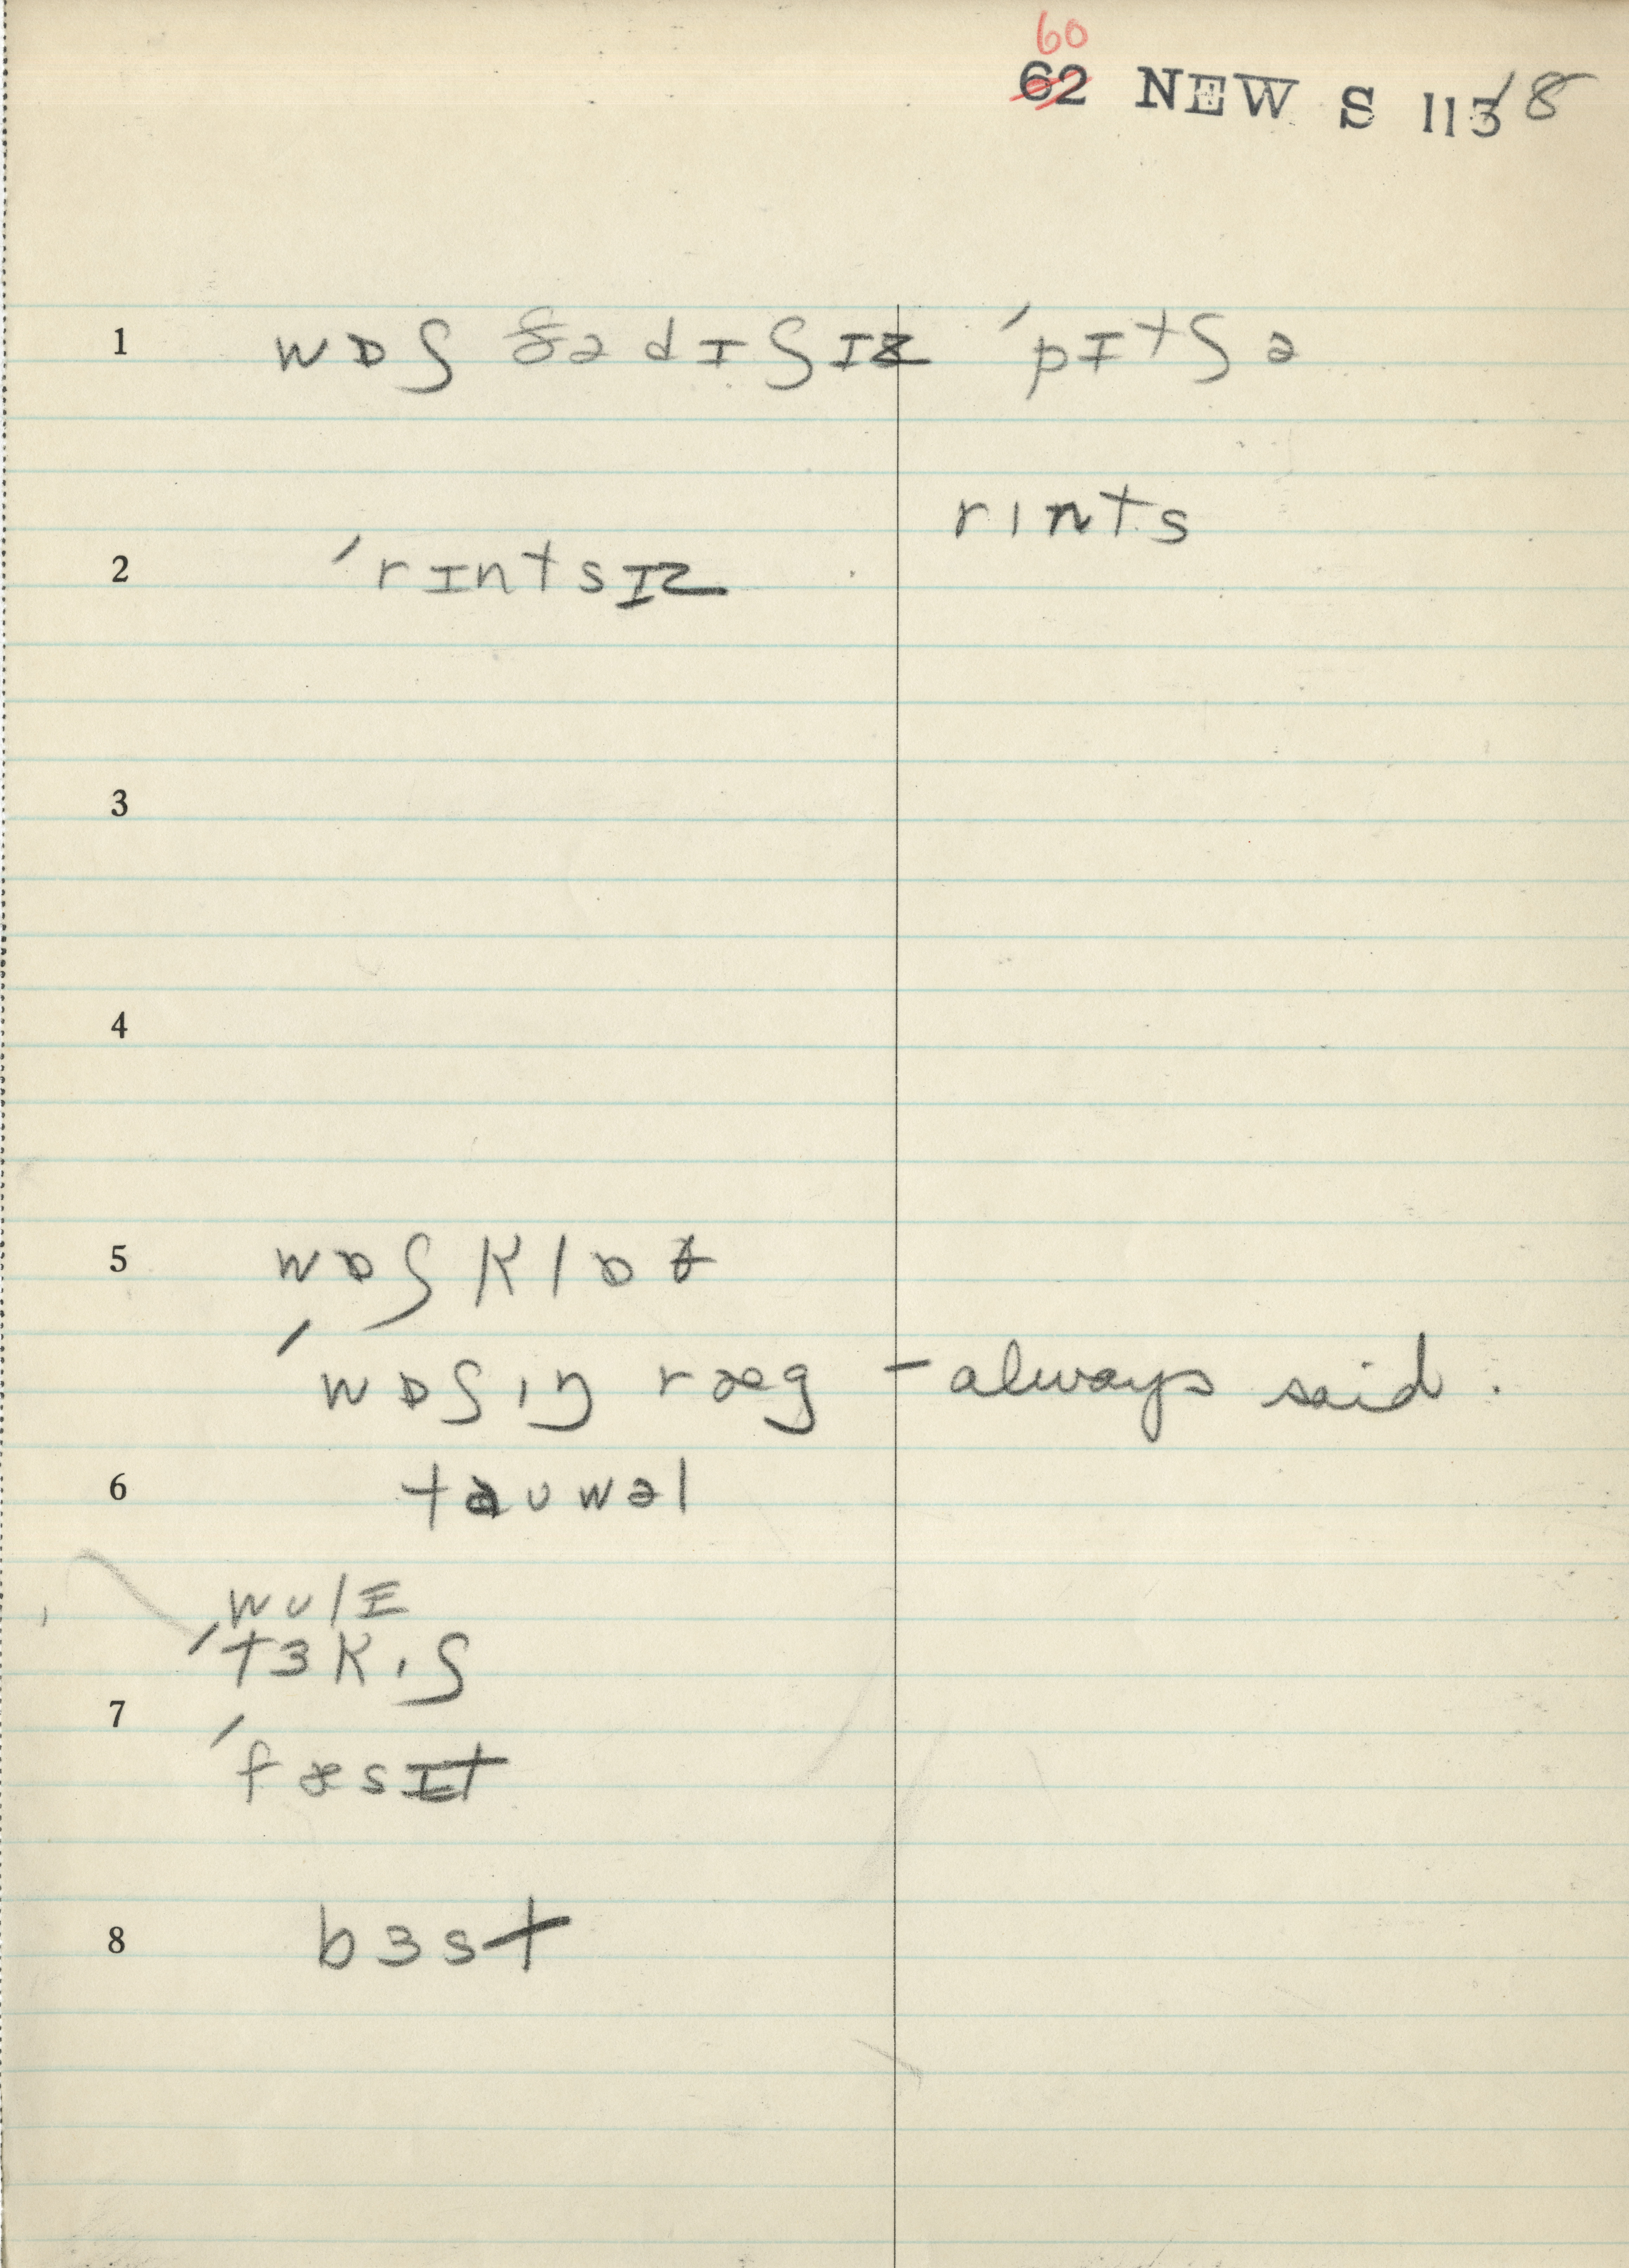 60
62 NEW S 113 8
1 wɒʃ ðə dɪʃɪz ˈpɪtʃə
rɪnts
2 ˈrɪntsɪz
3
4
5 wɒʃ klɒθ
ˈwɒʃɪŋ ræg – always said.
6 tauwəl
wulɪ
ˈtɜkɪʃ
7
ˈfæsɪt
8 bɜst